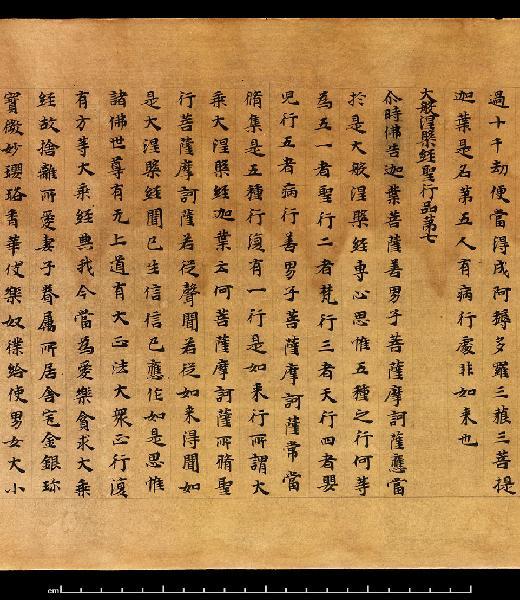 過十千劫便當得成阿耨多羅三藐三菩提
迦葉是名第五人有病行處非如来也
大般涅槃經聖行品第七
尒時佛告迦葉菩薩善男子菩薩摩訶薩應當
於是大般涅槃經專心思惟五種之行何等
為五一者聖行二者梵行三者天行四者嬰
兒行五者病行善男子菩薩摩訶薩常當
脩集是五種行復有一行是如来行所謂大
乘大涅槃經迦葉云何菩薩摩訶薩所脩聖
行菩薩摩訶薩若從聲聞若從如来得聞如
是大涅槃經聞已生信信已應作如是思惟
諸佛世尊有无上道有大正法大衆正行復
有方等大乘經典我今當為愛樂貪求大乘
經故捨離所愛妻子眷屬所居舍宅金銀珎
寳微妙瓔珞香華伎樂奴僕給使男女大小
cm